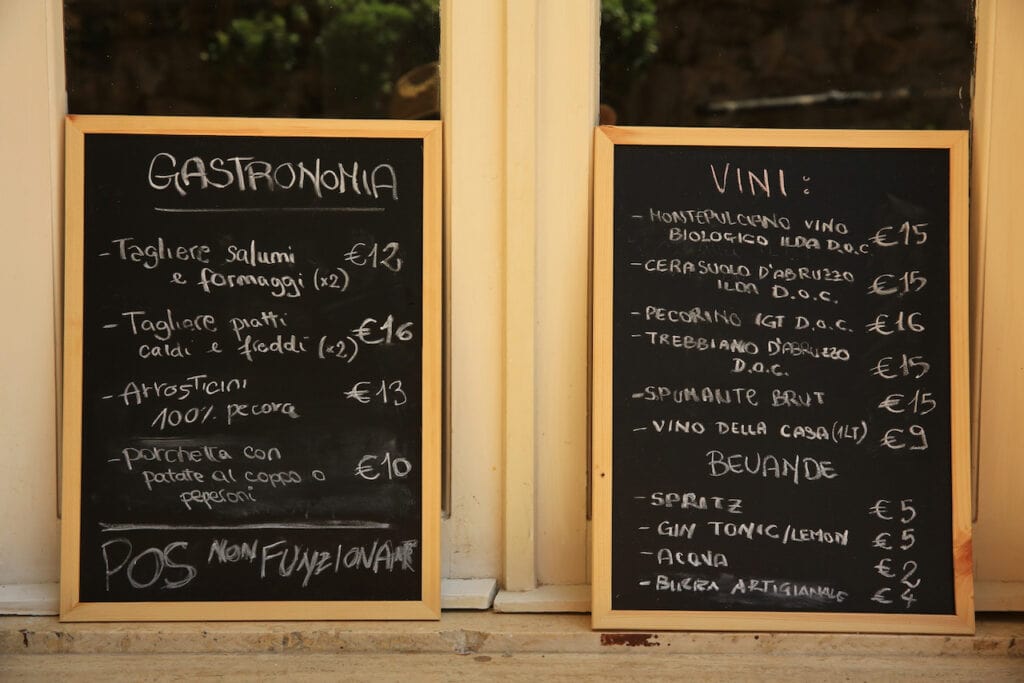 GASTRONOMIA
- Tagliere salumi €12
e formaggi (x2)
- Tagliere piatti €16
caldi e freddi (x2)
- Arrosticini €13
100% pecora
- porchetta con €10
patate al coppo o
peperoni
POS NON FUNZIONANTE
VINI:
- MONTEPULCIANO VINO €15
BIOLOGICO ILDA D.O.C.
- CERASUOLO D'ABRUZZO €15
ILDA D.O.C.
- PECORINO IGT D.O.C. €16
- TREBBIANO D'ABRUZZO €15
D.O.C.
- SPUMANTE BRUT €15
- VINO DELLA CASA (1LT) €9
BEVANDE
- SPRITZ €5
- GIN TONIC/LEMON €5
- ACQUA €2
- BIRRA ARTIGIANALE €4